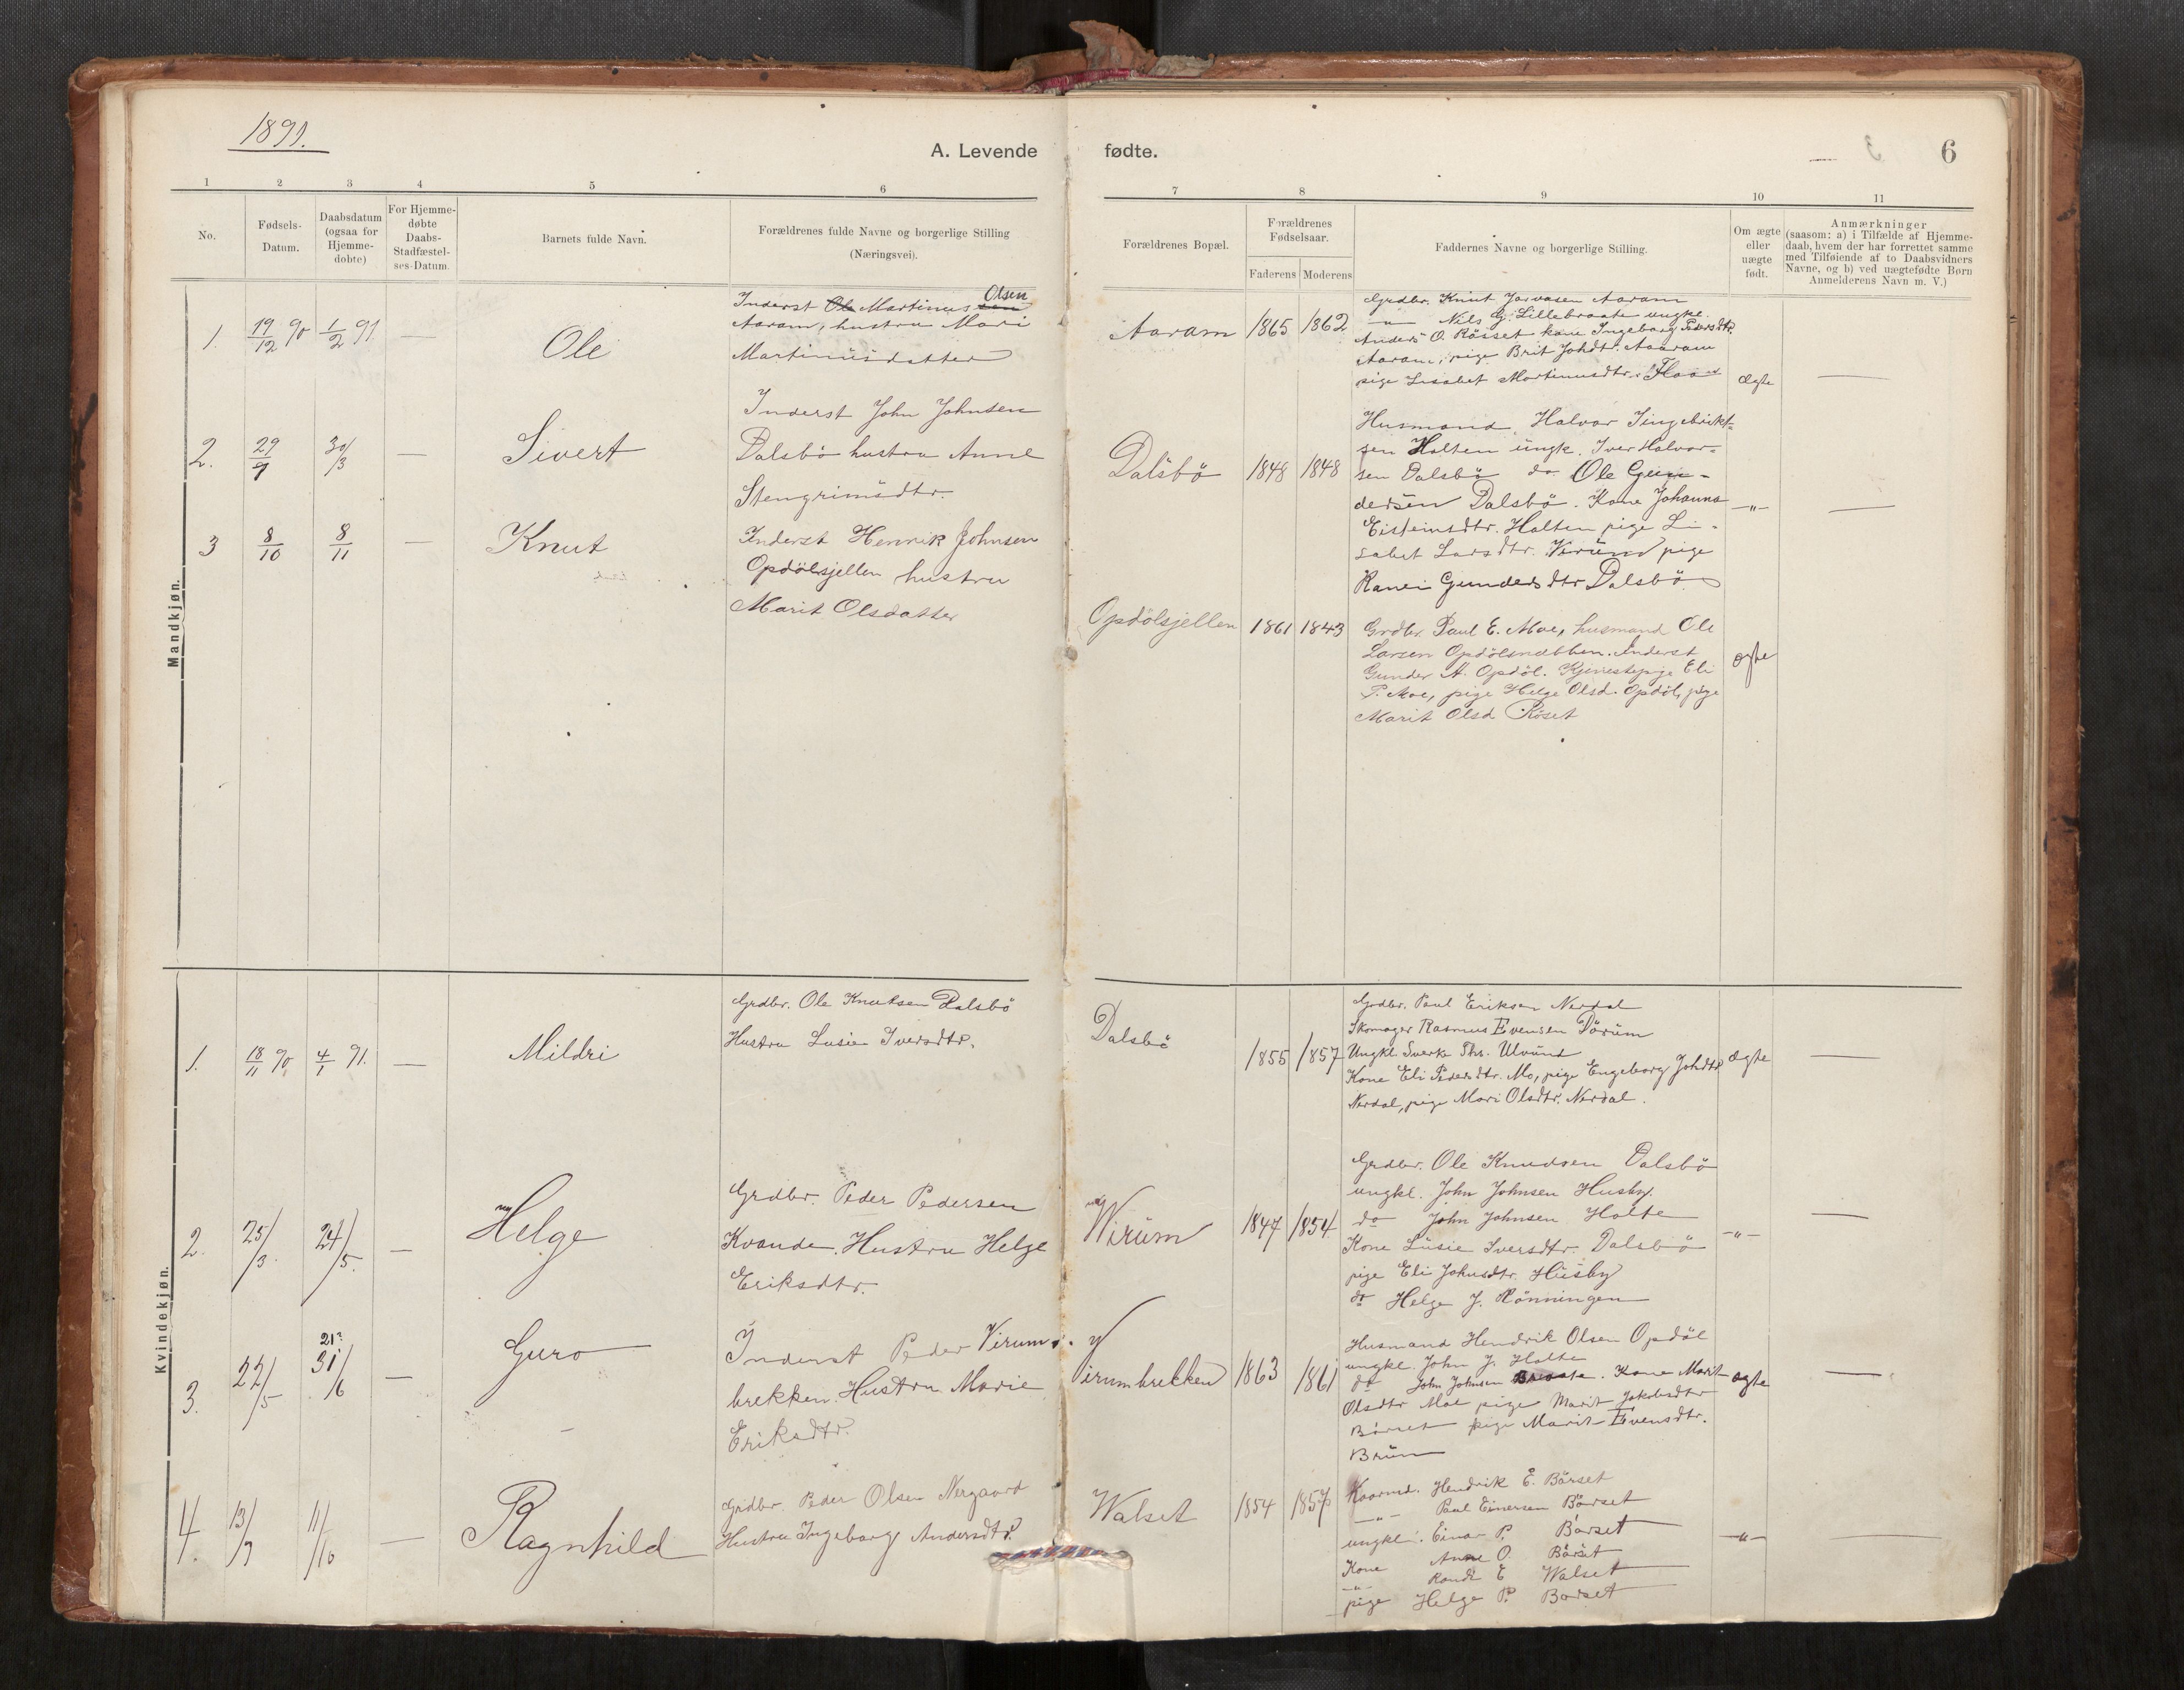 1891.
A. Levende fødte.
3
6
1 2 3 4 5 6 7 8 9 10 11
No.
Fødsels-
Datum.
Daabsdatum
(ogsaa for
Hjemme-
døbte)
For Hjemme-
døbte
Daabs-
Stadfæstel-
ses-Datum.
Barnets fulde Navn.
Forældrenes fulde Navne og borgerlige Stilling
(Næringsvei).
Forældrenes Bopæl.
Forældrenes
Fødselsaar.
Faderens Moderens
Faddernes Navne og borgerlige Stilling.
Om ægte
eller
uægte
født.
Anmærkninger
(saasom: a) i Tilfælde af Hjemme-
daab, hvem der har forrettet samme
med Tilføiende af to Daabsvidners
Navne, og b) ved uægtefødte Børn
Anmelderens Navn m. V.)
Mandkjøn.
1. 19/12 90 1/2 91 —
Ole
Inderst Ole Martinus Olsen
Aaram, hustru Mari
Martinusdatter
Aaram 1865 1862
Grdbr. Knut Jarvasen Aaram
—"— Nils G. Lillebraate ungke.
Anders O. Rösset kone Ingeborg Pedersdtr.
Aaram, pige Brit Johdtr. Aaram
pige Lisabet Martinusdtr.
Ægte —
2. 29/9 30/3 —
Sivert
Inderst John Johnsen
Dalsbö hustru Anne
Stengrimsdtr.
Dalsbö 1848 1848
Husmand Halvor Ingebrikt-
sen Holten ungk. Iver Halvor-
sen Dalsbö do Ole Gun-
dersen Dalsbö. Kone Johanna
Eisteinsdtr. Holten pige Li-
sabet Larsdtr. Virum pige
Ranei Gundersdtr Dalsbö
—"— —
3 8/10 8/11 —
Knut
Inderst Henrik Johnsen
Opdölsjellen hustru
Marit Olsdatter
Opdölsjellen 1861 1843
Grdbr. Paul E. Moe, husmand Ole
Larsen Opdölsnebben. Inderst
Gunder A. Opdöl. Kjenestepige Eli
P. Moe, pige Helge Olsd. Opdöl, pige
Marit Olsd Röset
ægte
Kvindekjøn.
1. 18/11 90 4/1 91. —
Mildri
Grdbr. Ole Knutsen Dalsbö
Hustru Lusie Iversdtr.
Dalsbö
1855 1857
Grdbr. Paul Eriksen Nerdal
Skomager Rasmus Evensen
Ungkl. Sverke Ths. Ulvund
Kone Eli Pedersdtr. Mo, pige Engeborg Johdtr
Nerdal, pige Mari Olsdtr. Nerdal.
ægte —
2. 25/3 24/5. —
Helge
Grdbr. Peder Pedersen
Kvande. Hustru Helge
Eriksdtr.
Wirum 1847 1854
Grdbr. Ole Knudsen Dalsbö
ungkl. John Johnsen Husby.
do John Johnsen Holte
Kone Lusie Iversdtr. Dalsbö
pige Eli Johnsdtr. Husby
do Helge J. Rönningen
—"— —
3. 22/5 21? 31/6 —
Guro
Inderst Peder Virum-
brekken. Hustru Marie
Eriksdtr.
Virumbrekken 1863 1861
Husmand Hendrik Olsen Opdöl
ungkl. John J. Holte
do John Johnsen . Kone Marit
Olsdtr Moe pige Marit Jakobsdtr
Börset pige Marit Evensdtr.
Brün
ægte —
4. 13/7 11/10 —
Ragnhild
Grdbr. Peder Olsen Nergaard
Hustru Ingeborg Andersdtr.
Walset 1854 1857
Kaarmd. Hendrik E. Börset
—"— Paul Einersen Börset
ungkl. Einar P. Börset
Kone Anne O. Börset
—"— Randi E Walset
pige Helge P. Börset
—"— —